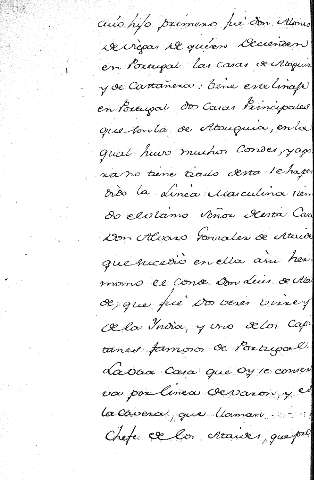 cuio hijo primero fué Don Alonso
de Vegas de quien Decienden
en Portugal las casas de Atougia
y de Castañera: tiene este linaje
en Portugal dos Casas Principales
que son la de Atouguia, en la
qual huvo muchos Condes, y aho
ra no tiene titulo desta se ha per
dido la Linea Masculina sien
do el ultimo Señor desta Casa
Don Alvaro Gonzalez de Ataide
que sucedió en ella a su her
mano el Conde Don Luis de Atai
de, que fué dos veces virrey
de la India, y uno de los Capi
tanes famosos de Portugal.
La otra Casa que oy se conser
va por linea de varon, y es
la cavera, que llaman
Chefe de los Ataides, que